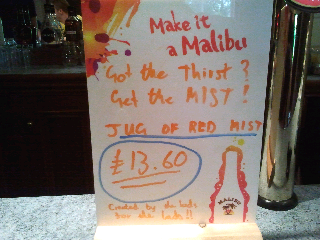 Make it
a Malibu
Got the Thirst ?
Get the MIST !
JUG OF RED MIST
£13.60
MALIBU
Created by the lads